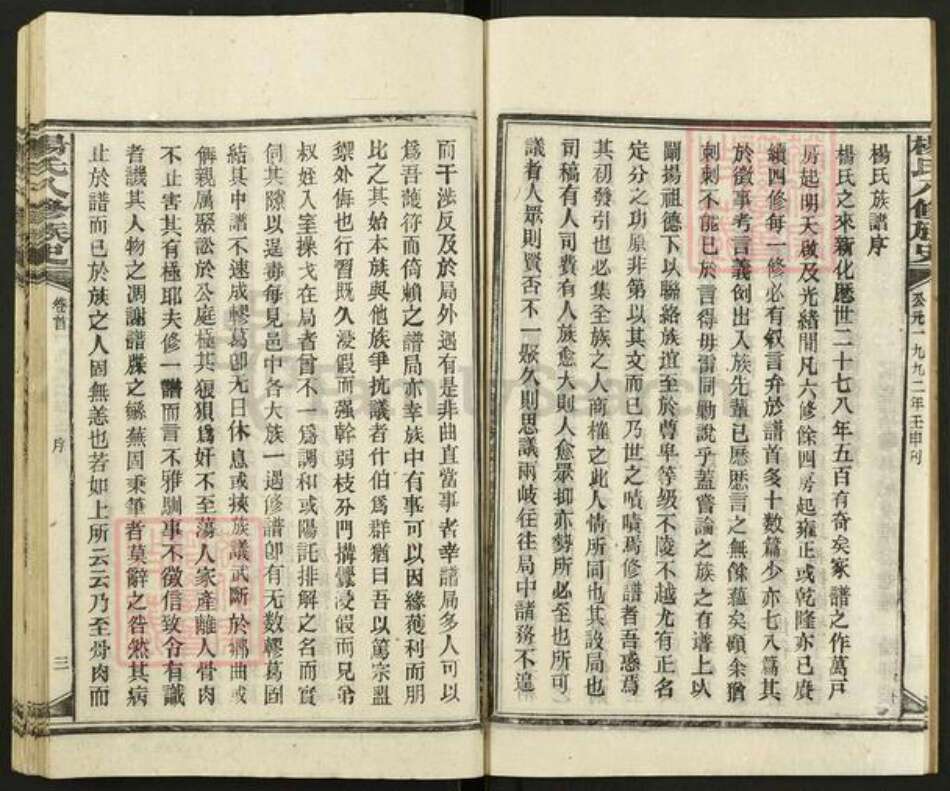 楊氏八修族史
公元一九九二年壬申刊
楊氏族譜序
楊氏之來新化歷世二十七八年五百有奇矣家譜之作萬戸
房起明天啟及光緒間凡六修餘四房起雍正或乾隆亦已賡
續四修每一修必有叙言弁於譜首多十數篇少亦七八篇其
於徵事考言義例出入族先輩已歷歷言之無餘蘊矣顧余猶
刺刺不能已於言得毋雷同勦說乎蓋嘗論之族之有譜上以
闡揚祖德下以聯絡族誼至於尊卑等級不陵不越尤有正名
定分之功原非第以其文而已乃世之嘖嘖焉修譜者吾惑焉
其初發引也必集全族之人商榷之此人情所同也其設局也
司稿有人司費有人族愈大則人愈眾抑亦勢所必至也所可
議者人眾則賢否不一聚久則思議兩岐往往局中諸務不遑
而干涉反及於局外遇有是非曲直當事者幸譜局多人可以
爲吾護符而倚賴之譜局亦幸族中有事可以因緣獲利而朋
比之其始本族與他族爭抗議者什伯爲群猶曰吾以篤宗盟
禦外侮也行習既久浸假而强幹弱枝分門搆釁浸假而兄弟
叔姪入室操戈在局者曾不一爲調和或陽託排解之名而實
伺其隙以逞毒每見邑中各大族一遇修譜卽有无数轇葛固
結其中譜不速成轇葛卽无日休息或挾族議武斷於鄉曲或
僻親屬聚訟於公庭極其狠狽爲奸不至蕩人家產離人骨肉
不止害其有極耶夫修一譜而言不雅馴事不徵信致令有識
者譏其人物之凋謝譜牒之蕪因秉筆者莫辭之咎然其病
止於譜而已於族之人固無恙也若如上所云云乃至骨肉而
楊氏八修族史
卷首
序
三